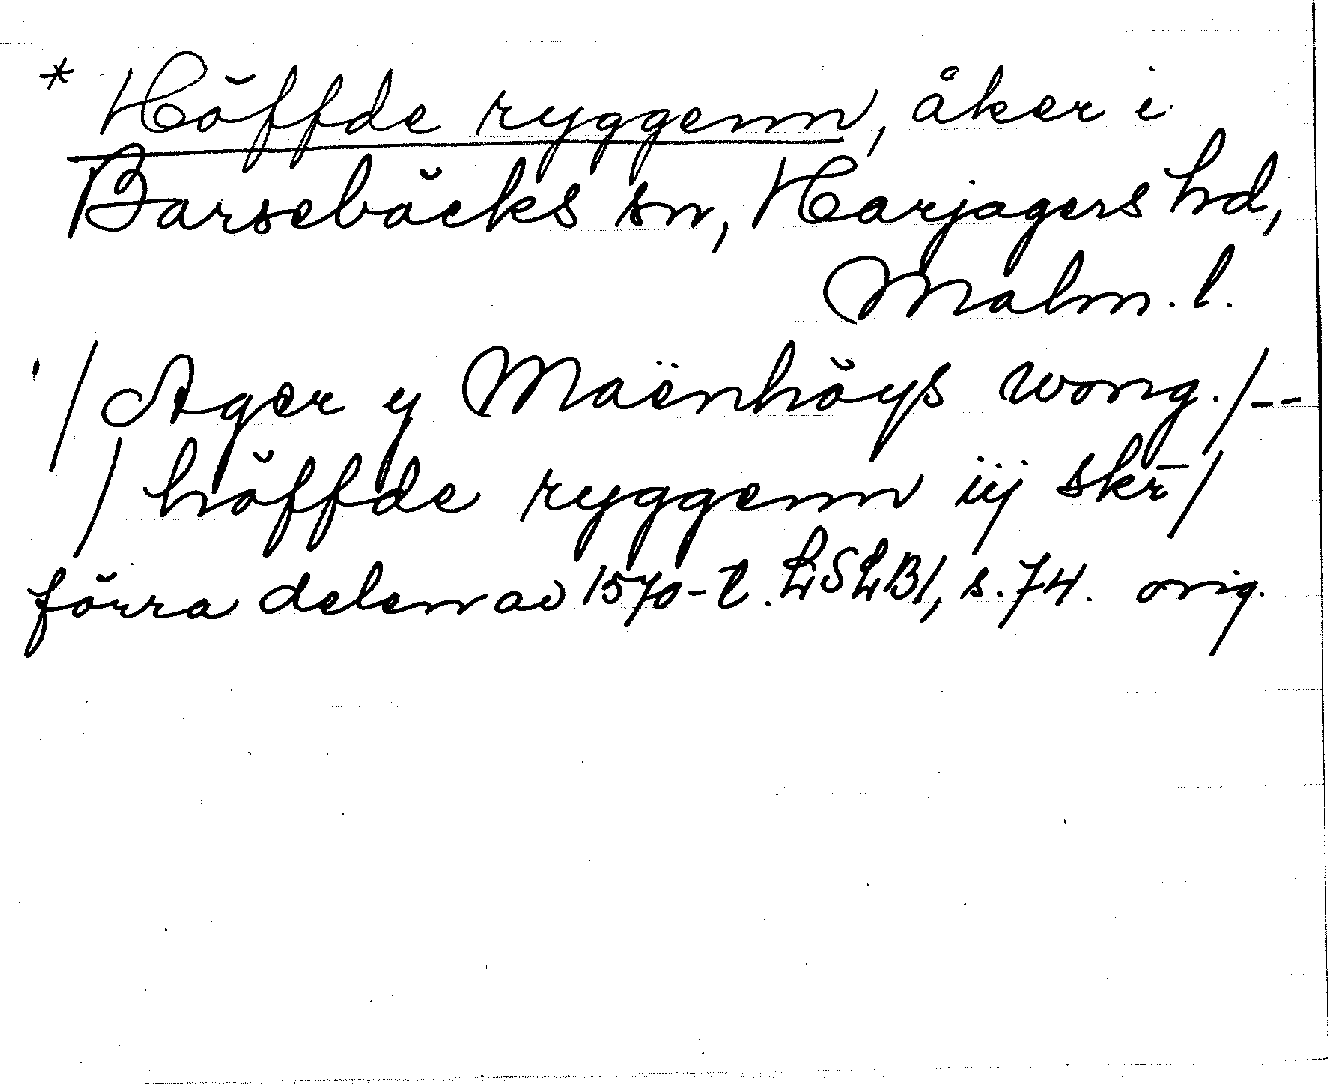 * Höffde ryggenn, åker i
Barsebäcks sn, Harjagers hd,
Malm. l.
'/ Ager y Maënhöys wong. / --
/ höffde ryggenn iij skr̄ /
förra delen av 1570-t. LSLB1, s. 74. orig.